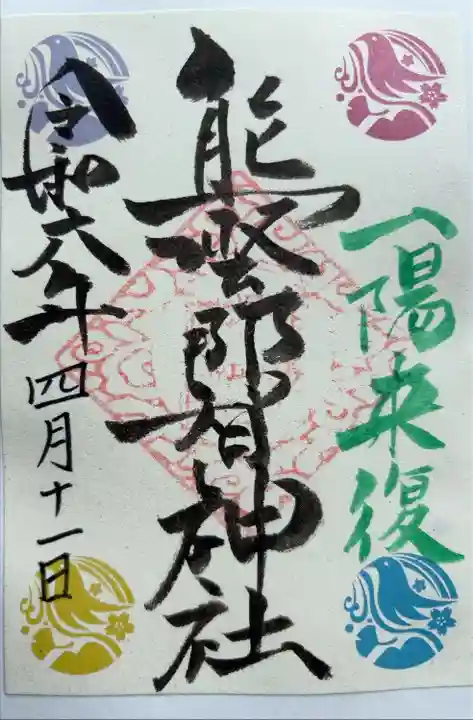 一陽来復
熊野那智神社
令和六年四月十一日